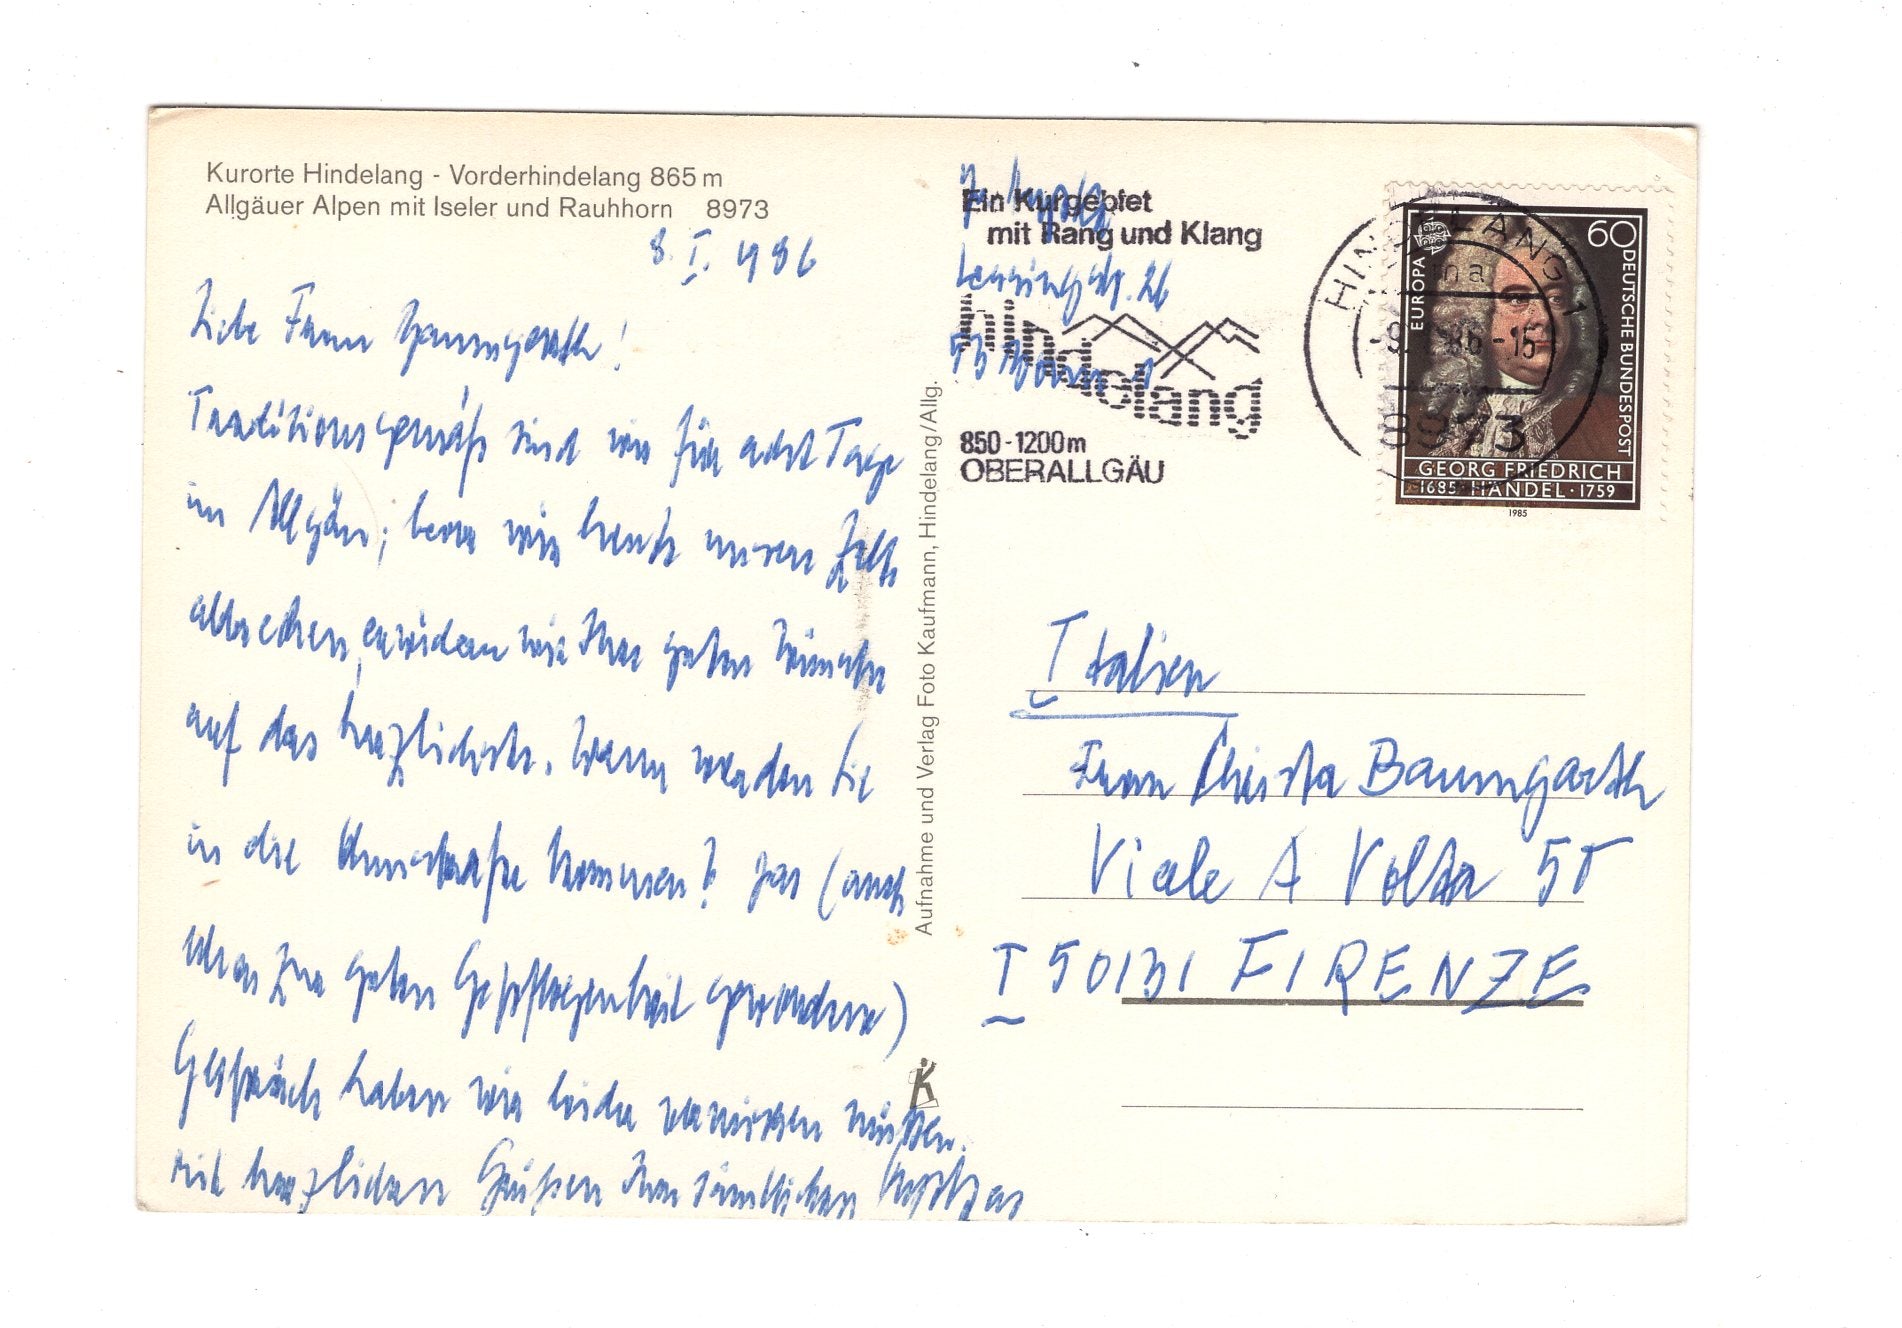 Kurorte Hindelang - Vorderhindelang 865 m
Allgäuer Alpen mit Iseler und Rauhhorn 8973
8. I. 1986
Liebe Frau Baumgarth!
Traditionsgemäß sind wir für acht Tage
im Allgäu; bevor wir heute unsere Zelte
abbrechen, erwidern wir Ihre guten Wünsche
auf das herzlichste. Wann werden Sie
in die kommen? Das (auch
uns zur guten Gepflogenheit gewordene)
Gespräch haben wir leider vermissen müßen.
Mit herzlichen Grüßen Ihre sämtlichen
Aufnahme und Verlag Foto Kaufmann, Hindelang/Allg.
Ein Kurgebiet
mit Rang und Klang
Lessingstr. 26
53 Bonn 1
Hindelang
850 - 1200 m
OBERALLGÄU
HINDELANG 1
-9. 1.86-15
8973
60
EUROPA
DEUTSCHE BUNDESPOST
GEORG FRIEDRICH
1685 · HÄNDEL · 1759
1985
Italien
Frau Christa Baumgarth
Viale A Volta 50
I 50131 FIRENZE
K